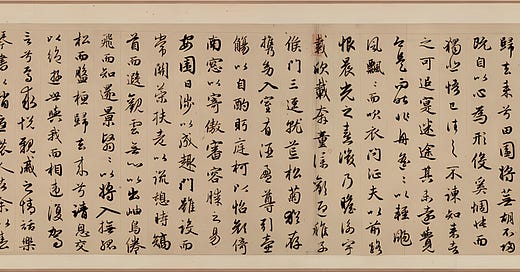 歸去来兮田園将蕪胡不歸
既自以心為形役奚惆悵而
獨悲悟已往之不諫知来者
之可追寔迷途其未遠覺
今是而昨非舟遥遥以輕颺
風飄飄而吹衣問征夫以前路
恨晨光之熹微乃瞻衡宇
載欣載奔童僕歡迎稚子
候門三逕就荒松菊猶存
携幼入室有酒盈尊引壺
觴以自酌眄庭柯以怡顔倚
南窓以寄傲審容膝之易
安園日涉以成趣門雖設而
常關策扶老以流憩時矯
首而遐觀雲無心以出岫鳥倦
飛而知還景翳翳以将入撫孤
松而盤桓歸去来兮請息交
以絶游世與我而相違復駕
言兮焉求悦親戚之情話樂
琴書以消憂農人告余以